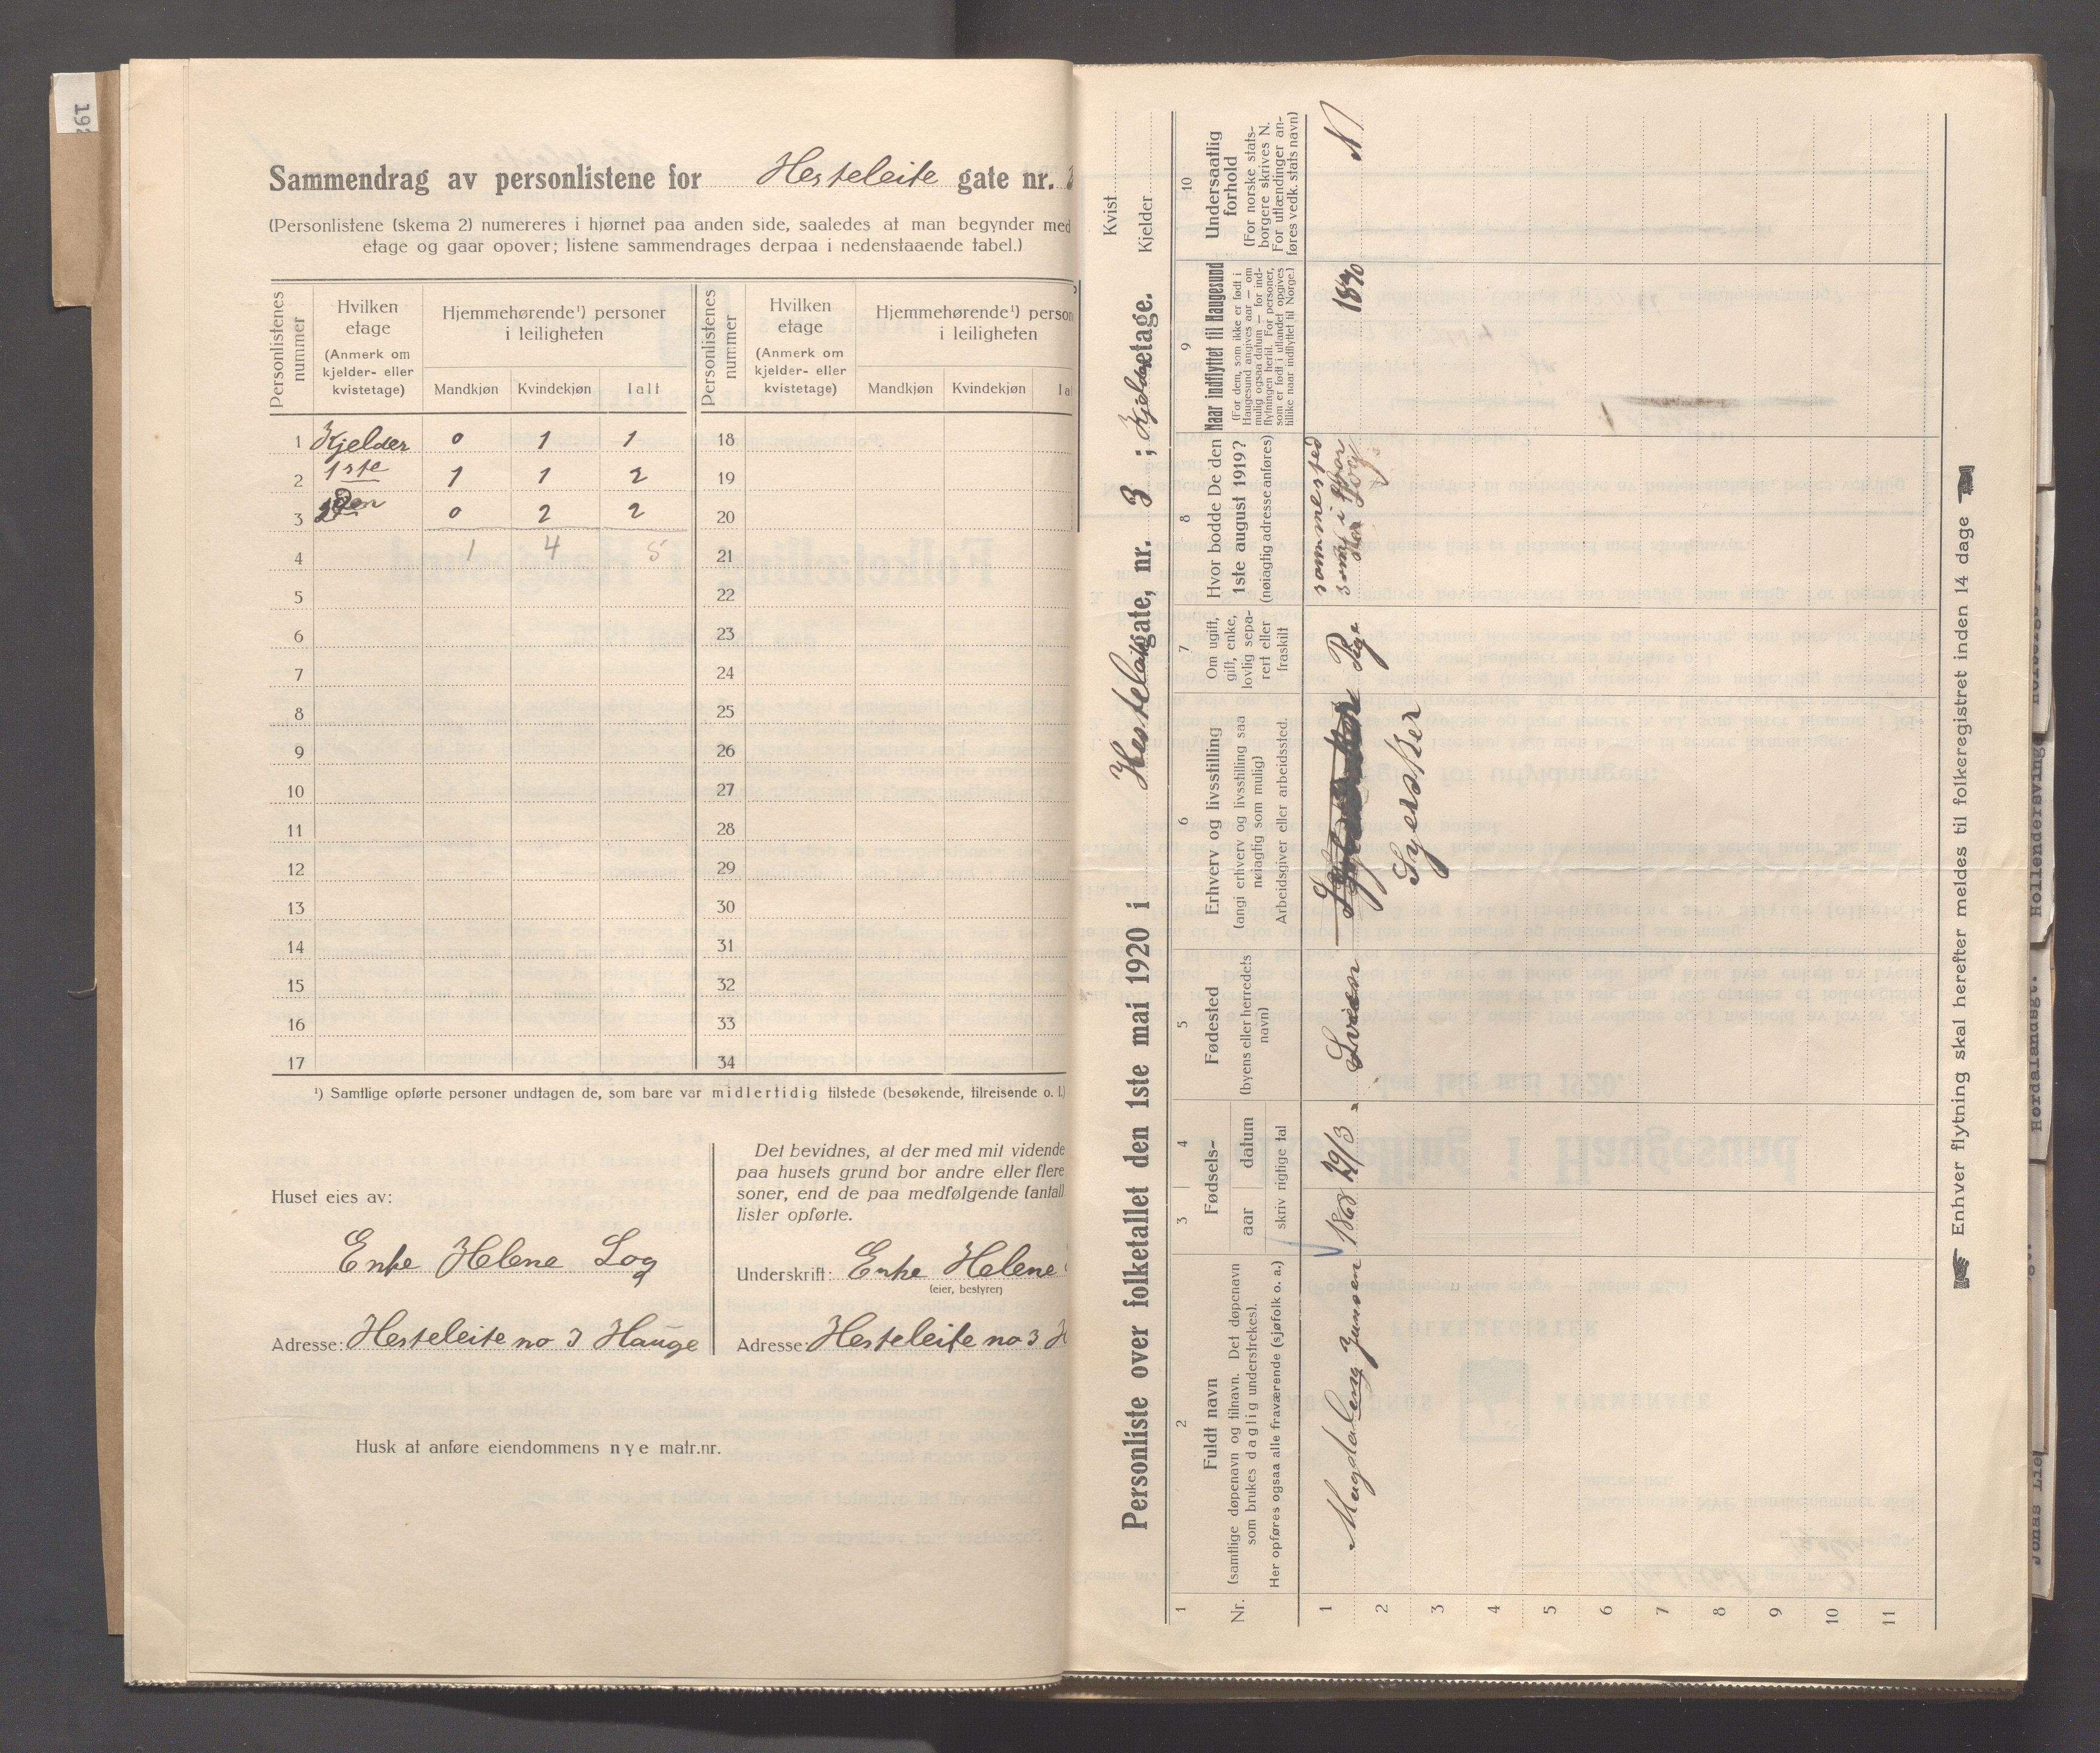 192
Sammendrag av personlistene for Hesteleite gate nr. 3
(Personlistene (skema 2) numereres i hjørnet paa anden side, saaledes at man begynder med
etage og gaar opover; listene sammendrages derpaa i nedenstaaende tabel.)
Personlistenes nummer
Hvilken etage
(Anmerk om kjelder- eller kvistetage)
Hjemmehørende¹) personer i leiligheten
Mandkjøn Kvindekjøn Ialt
Personlistenes nummer
Hvilken etage
(Anmerk om kjelder- eller kvistetage)
Hjemmehørende¹) person
i leiligheten
Mandkjøn Kvindekjøn Ia
1 Kjelder 0 1 1 18
2 1ste 1 1 2 19
3 2den 0 2 2 20
4 1 4 5 21
5 22
6 23
7 24
8 25
9 26
10 27
11 28
12 29
13 30
14 31
15 32
16 33
17 34
¹) Samtlige opførte personer undtagen de, som bare var midlertidig tilstede (besøkende, tilreisende o. l.)
Huset eies av:
Enke Helene Log
Adresse: Hesteleite no 3 Hauge
Det bevidnes, at der med mit vidende
paa husets grund bor andre eller flere
soner, end de paa medfølgende (antal)
lister opførte.
Underskrift: Enke Helene
(eier, bestyrer)
Adresse: Hesteleite no 3 H
Husk at anføre eiendommens nye matr.nr.
Personliste over folketallet den 1ste mai 1920 i Hesteleite gate, nr. 3 ; Kjelder etage.
Kvist
Kjelder
1
Nr.
2
Fuldt navn
(samtlige døpenavn og tilnavn. Det døpenavn
som brukes daglig understrekes).
Her opføres ogsaa alle fraværende (sjøfolk o. a.)
3 4
Fødsels-
aar datum
skriv rigtige tal
5
Fødested
(byens eller herredets
navn)
6
Erhverv og livsstilling
(angi erhverv og livsstilling saa
nøiagtig som mulig)
Arbeidsgiver eller arbeidssted.
7
Om ugift,
gift, enke,
lovlig sepa-
rert eller
fraskilt
8
Hvor bodde De den
1ste august 1919?
(nøiagtig adresse anføres)
9
Naar indflyttet til Haugesund
(For dem, som ikke er født i
Haugesund angives aar — om
mulig ogsaa datum — for ind-
flytningen hertil. For personer,
som er født i utlandet opgives
tillike naar indflyttet til Norge.)
10
Undersaatlig
forhold
(For norske stats-
borgere skrives N.
For utlændinger an-
føres vedk. stats navn)
1 Magdalena Jensen 1868 29/3 Sveen Syersker Pige sammested som i fjor 1890 N
2
3
4
5
6
7
8
9
10
11
Enhver flytning skal herefter meldes til folkeregistret inden 14 dage
Hollendersving
Hordalandsgt.
Jonas Lie